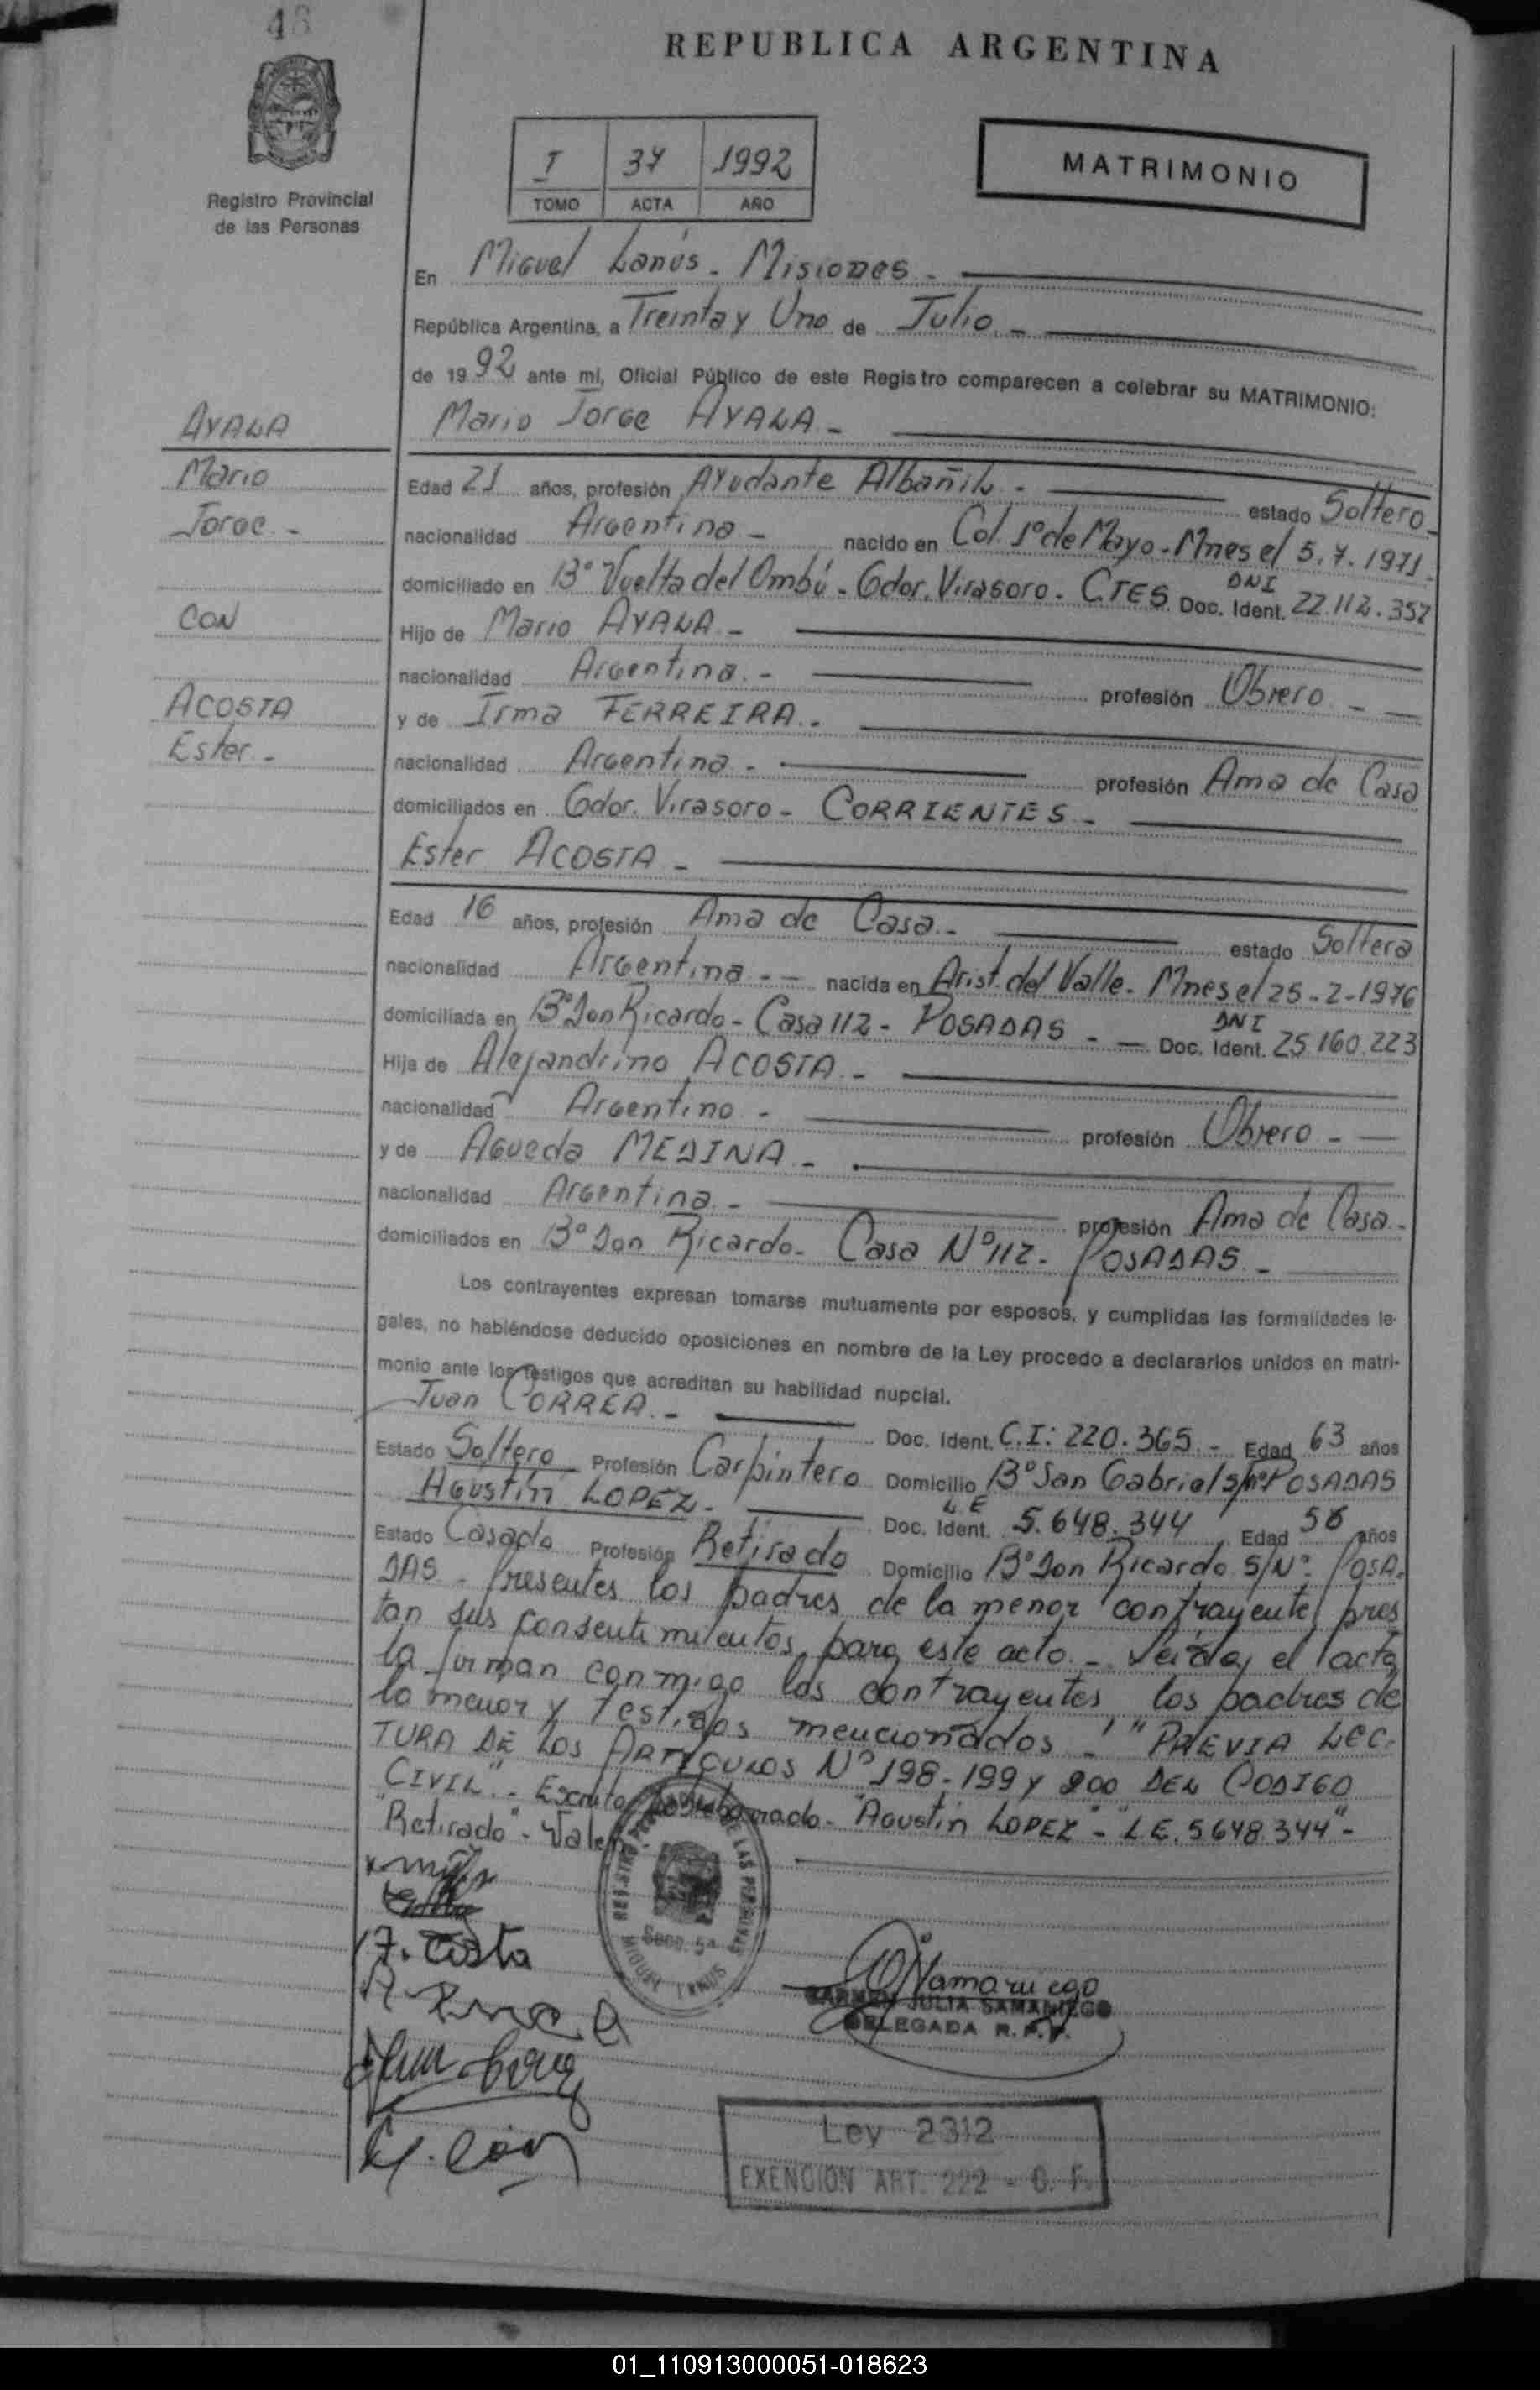 48
REPUBLICA ARGENTINA
Registro Provincial
de las Personas
I 37 1992
TOMO ACTA AÑO
MATRIMONIO
En Miguel Lanús - Misiones -
República Argentina, a Treinta y Uno de Julio -
de 1992 ante mí, Oficial Público de este Registro comparecen a celebrar su MATRIMONIO:
AYALA
Mario
Jorge -
CON
ACOSTA
Ester -
Mario Jorge AYALA -
Edad 21 años, profesión Ayudante Albañil - estado Soltero -
nacionalidad Argentina - nacido en Col. 1º de Mayo - Mnes el 5.7.1971.
domiciliado en Bº Vuelta del Ombú - Gdor. Virasoro - CTES. Doc. Ident. DNI 22.112.357
Hijo de Mario AYALA -
nacionalidad Argentina - profesión Obrero -
y de Irma FERREIRA -
nacionalidad Argentina - profesión Ama de Casa
domiciliados en Gdor. Virasoro - CORRIENTES -
Ester ACOSTA -
Edad 16 años, profesión Ama de Casa - estado Soltera
nacionalidad Argentina - nacida en Arist. del Valle - Mnes el 25-2-1976
domiciliada en Bº Don Ricardo - Casa 112 - POSADAS - Doc. Ident. DNI 25.160.223
Hija de Alejandrino ACOSTA -
nacionalidad Argentino - profesión Obrero -
y de Agueda MEDINA -
nacionalidad Argentina - profesión Ama de Casa -
domiciliados en Bº Don Ricardo - Casa Nº 112 - POSADAS -
Los contrayentes expresan tomarse mutuamente por esposos, y cumplidas las formalidades le-
gales, no habiéndose deducido oposiciones en nombre de la Ley procedo a declararlos unidos en matri-
monio ante los testigos que acreditan su habilidad nupcial.
Juan CORREA - Doc. Ident. C.I: 220.365 - Edad 63 años
Estado Soltero Profesión Carpintero Domicilio Bº San Gabriel s/nº POSADAS
Agustín LOPEZ - Doc. Ident. L.E 5.648.344 Edad 58 años
Estado Casado Profesión Retirado Domicilio Bº Don Ricardo S/Nº POSA.
DAS - Presentes los padres de la menor contrayente, pres
tan sus consentimientos para este acto - Leída, el acta
la firman conmigo los contrayentes los padres de
la menor y Testigos mencionados - "PREVIA LEC.
TURA DE LOS ARTICULOS Nº 198-199 y 200 DEL CODIGO
CIVIL" - Escrito sobreborrado - "Agustín LOPEZ" - "L.E. 5648.344" -
"Retirado" - Vale -
REGISTRO DE LAS PERSONAS
Secc. 5ª
MIGUEL LANUS
CARMEN JULIA SAMANIEGO
DELEGADA R. P. P.
Ley 2312
EXENCION ART. 222 - C. F.
01_110913000051-018623